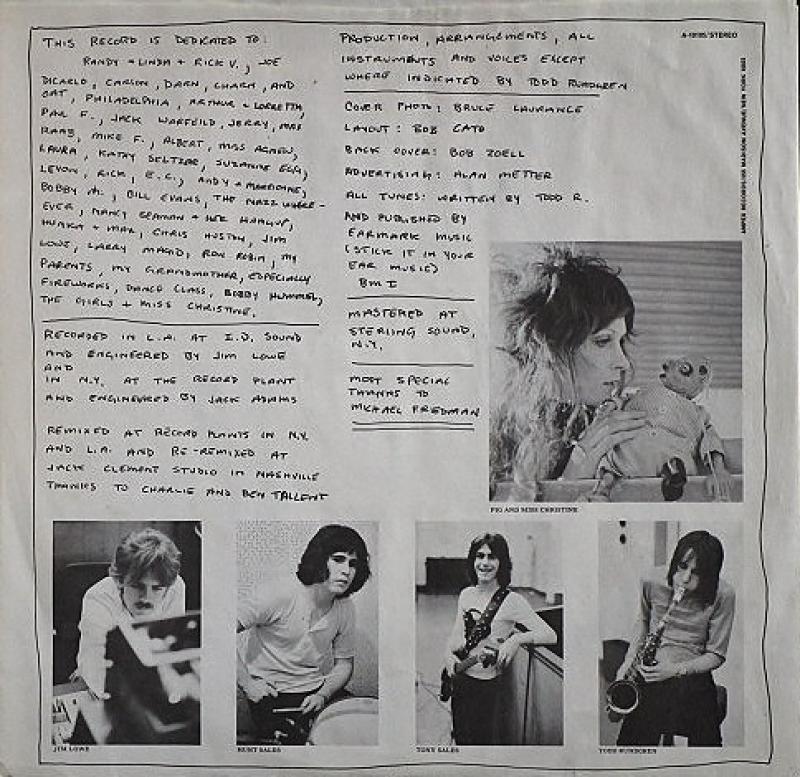 THIS RECORD IS DEDICATED TO:
RANDY + LINDA + RICK V., JOE
DICARLO, CARSON, DARN, CHARM, AND
OAT, PHILADELPHIA, ARTHUR + LORRETTA,
PAUL F., JACK WARFEILD, JERRY, MRS
RAAB, MIKE F., ALBERT, MISS AGNEW,
LAURA, KATHY SELTZER, SUZANNE EGA,
LEVON, RICK, E.C., ANDY + MARRIONNE,
BOBBY M., BILL EVANS, THE NAZZ WHERE-
EVER, NANCY SEAMAN + HER HANGUP,
HUNKA + MAX, CHRIS HUSTON, JIM
LOWE, LARRY MAGID, RON ROBIN, MY
PARENTS, MY GRANDMOTHER, ESPECIALLY
FIREWORKS, DANCE CLASS, BOBBY HUMMEL,
THE GIRLS + MISS CHRISTINE.
RECORDED IN L.A. AT I.D. SOUND
AND ENGINEERED BY JIM LOWE
AND
IN N.Y. AT THE RECORD PLANT
AND ENGINEERED BY JACK ADAMS
REMIXED AT RECORD PLANTS IN N.Y.
AND L.A. AND RE-REMIXED AT
JACK CLEMENT STUDIO IN NASHVILLE
THANKS TO CHARLIE AND BEN TALLENT
PRODUCTION, ARRANGEMENTS, ALL
INSTRUMENTS AND VOICES EXCEPT
WHERE INDICATED BY TODD RUNDGREN
COVER PHOTO: BRUCE LAURANCE
LAYOUT: BOB CATO
BACK COVER: BOB ZOELL
ADVERTISING: ALAN METTER
ALL TUNES: WRITTEN BY TODD R.
AND PUBLISHED BY
EARMARK MUSIC
(STICK IT IN YOUR
EAR MUSIC)
BMI
MASTERED AT
STERLING SOUND,
N.Y.
MOST SPECIAL
THANKS TO
MICHAEL FRIEDMAN
A-10105/STEREO
AMPEX RECORDS/555 MADISON AVENUE/NEW YORK 10022
PIG AND MISS CHRISTINE
JIM LOWE
HUNT SALES
TONY SALES
TODD RUNDGREN